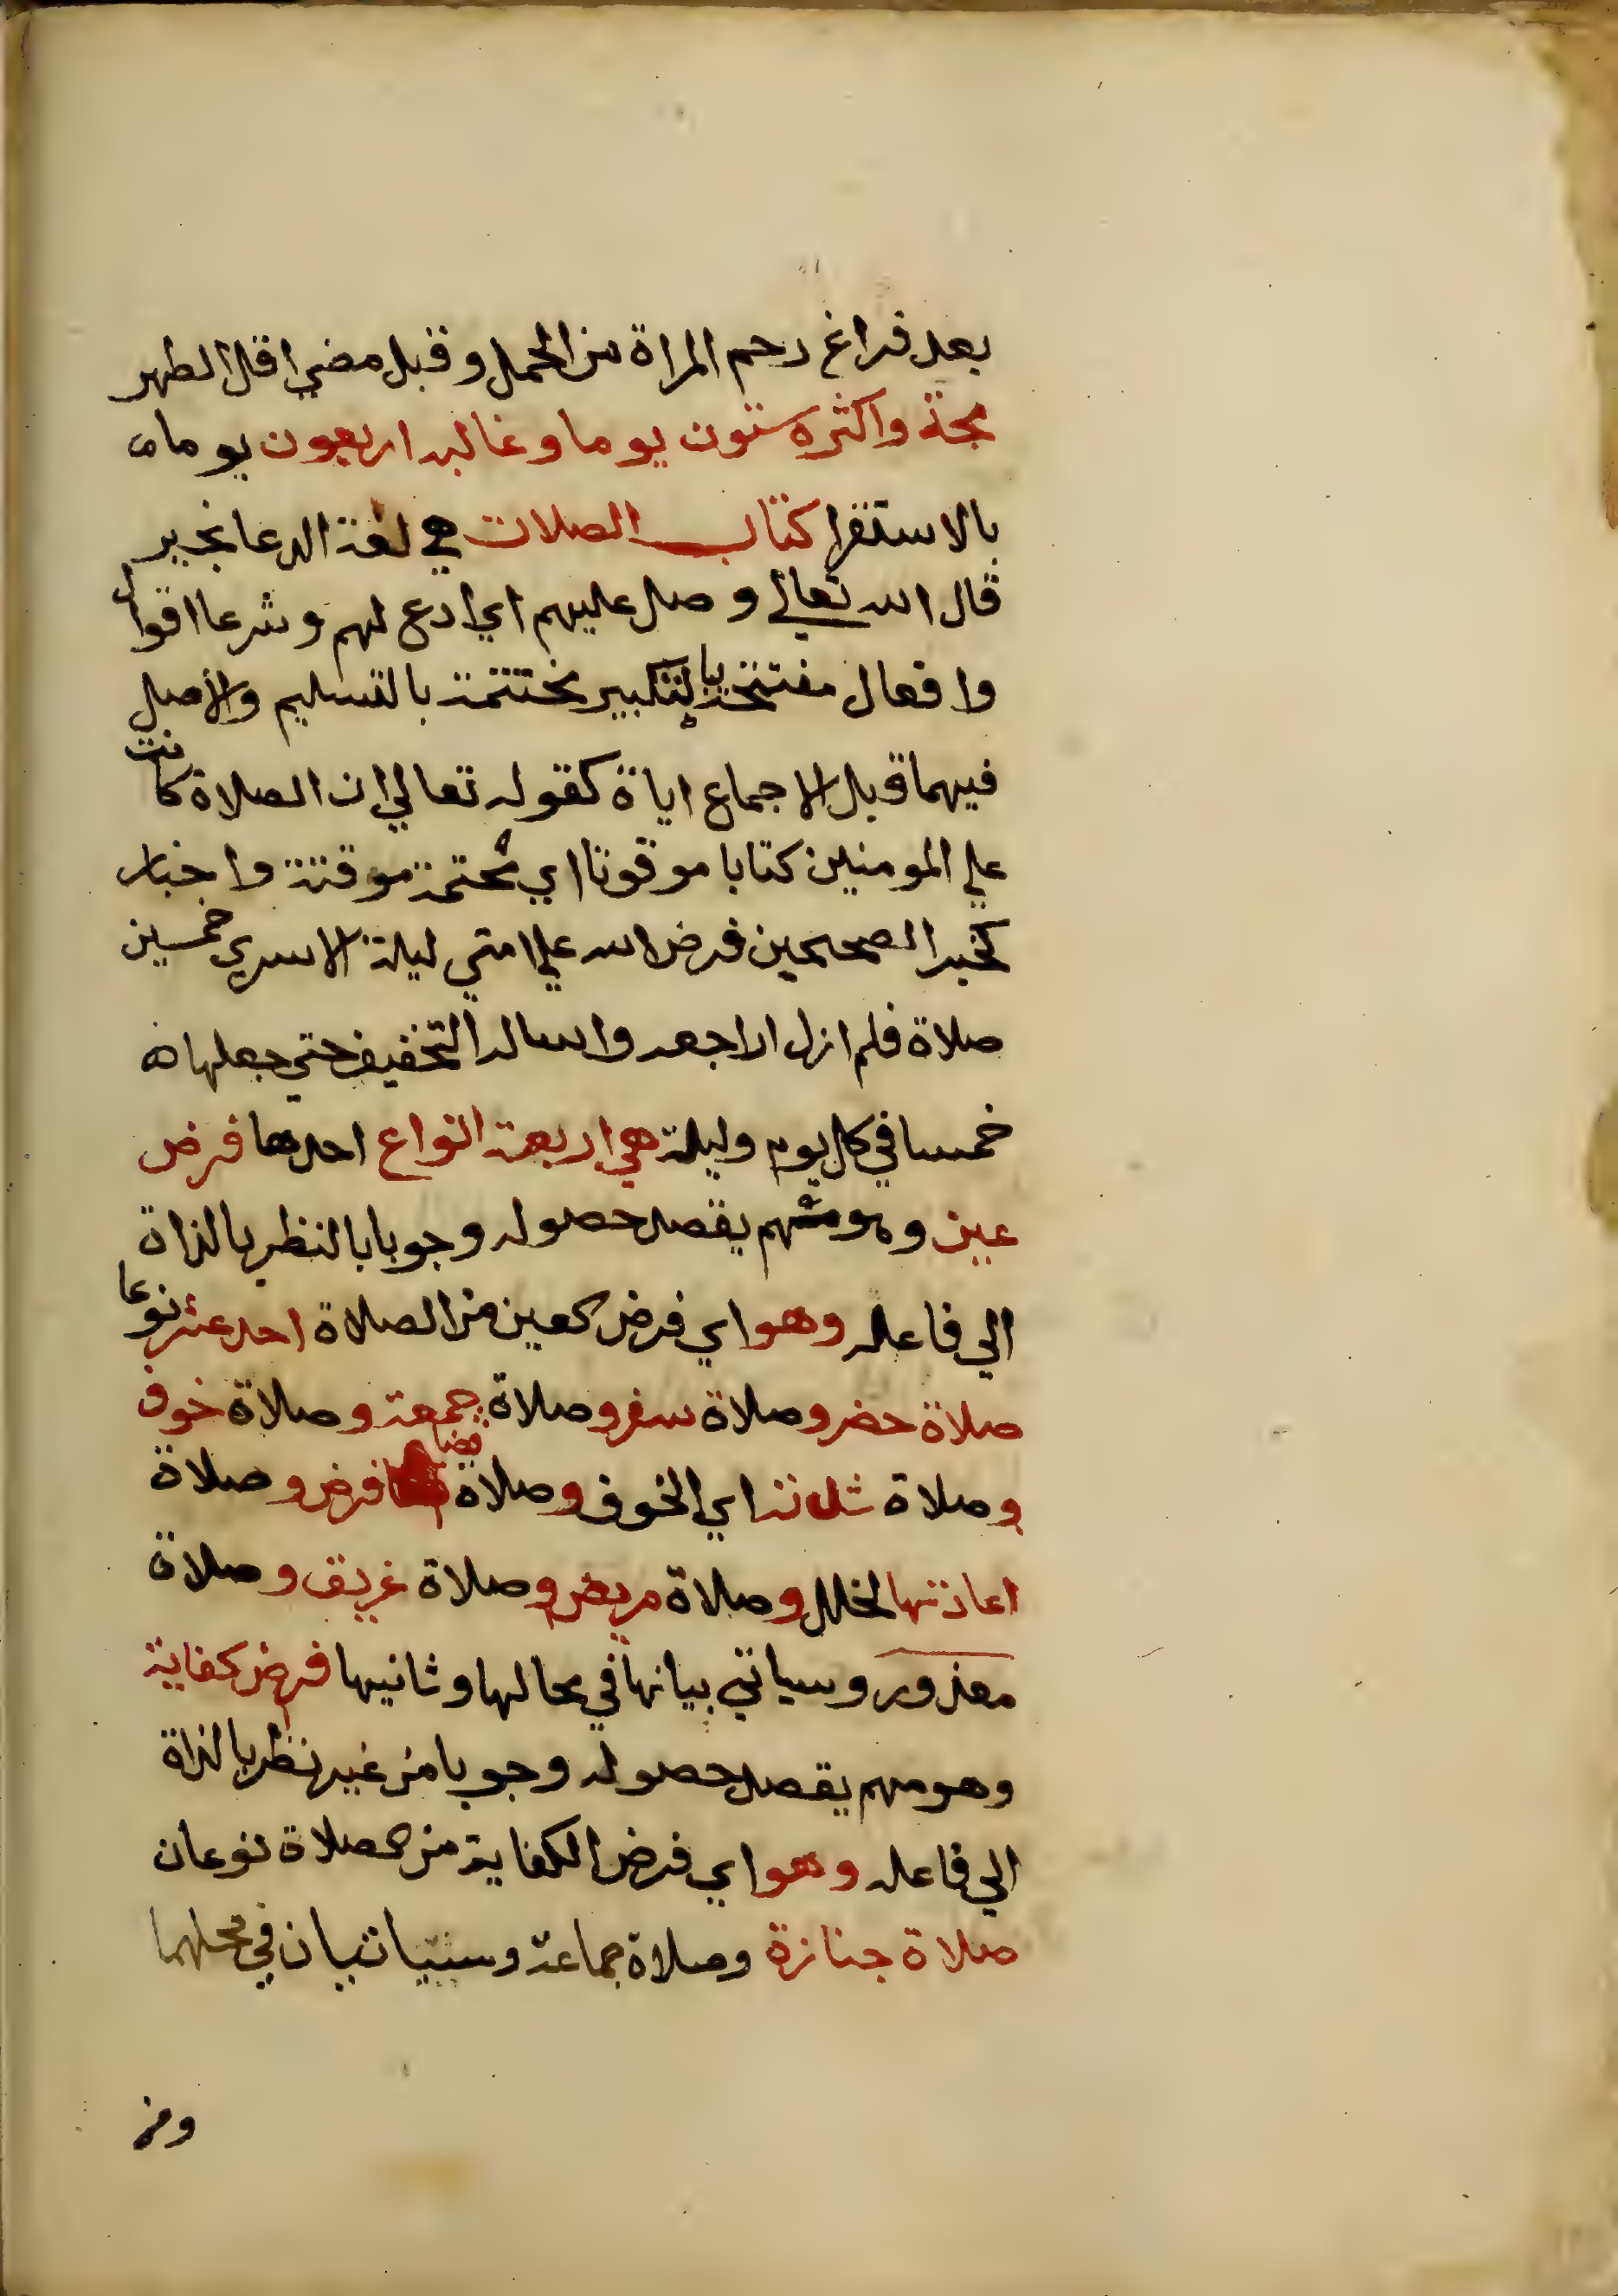 بعد فراغ رحم المراة من الحمل وقبل مضي اقل الطهر
مجة واكثره ستون يوما وغالبه اربعون يوما
بالاستقرا كتاب الصلات هي لغة الدعا بخير
قال الله تعالي وصل عليهم اي ادع لهم وشرعا اقوال
وافعال مفتتحة بالتكبير مختتمة بالتسليم والاصل
فيهما قبل الاجماع اياة كقوله تعالي ان الصلاة كانت
علي المومنين كتابا موقوتا اي محتمة موقتة واخبار
كخبر الصحيحين فرض الله علي امتي ليلة الاسري خمسين
صلاة فلم ازل اراجعه واساله التخفيف حتي جعلها
خمسا في كل يوم وليلة هي اربعة انواع احدها فرض
عين وهو مهم يقصد حصوله وجوبا بالنظر بالذاة
الي فاعله وهو اي فرض كعين من الصلاة احد عشر نوعا
صلاة حضر وصلاة سفر وصلاة جمعة وصلاة خوف
وصلاة شدته اي الخوف وصلاة قضا فرض وصلاة
اعادتها لخلل وصلاة مريض وصلاة غريق وصلاة
معذور وسياتي بيانها في محالها وثانيها فرض كفاية
وهو مهم يقصد حصوله وجوبا من غير نظر بالذاة
الي فاعله وهو اي فرض الكفاية من الصلاة نوعان
صلاة جنازة وصلاة جماعة وسياتيان في محلهما
ومن